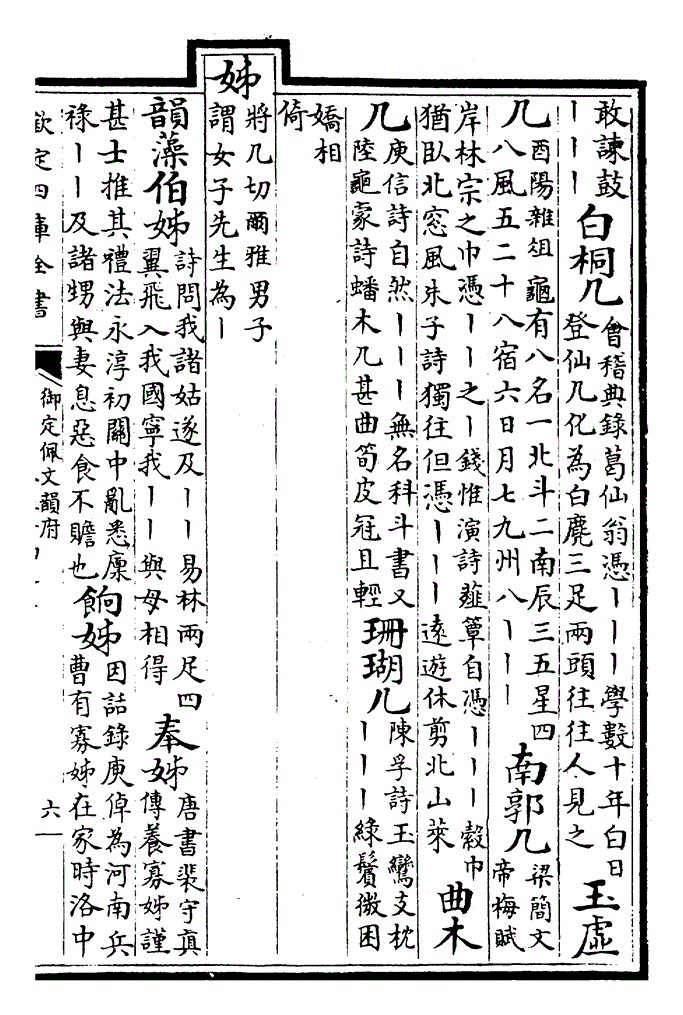 敢諫鼓
丨丨丨
白桐几
會稽典錄葛仙翁憑丨丨丨學數十年白日
登仙几化為白麂三足兩頭往往人見之
玉虛
几
酉陽雜俎龜有八名一北斗二南辰三五星四
八風五二十八宿六日月七九州八丨丨丨
南郭几
梁簡文
帝梅賦
岸林宗之巾憑丨丨之丨錢惟演詩薤簟自憑丨丨丨縠巾
猶臥北窓風朱子詩獨往但憑丨丨丨遠遊休剪北山萊
曲木
几
庾信詩自然丨丨丨無名科斗書又
陸龜蒙詩蟠木几甚曲筍皮冠且輕
珊瑚几
陳孚詩玉鸞支枕
丨丨丨綠鬢微困
嬌相
倚
姊
將几切爾雅男子
謂女子先生為丨
韻藻伯姊
詩問我諸姑遂及丨丨易林兩足四
翼飛入我國寧我丨丨與母相得
奉姊
唐書裴守真
傳養寡姊謹
甚士推其禮法永淳初關中亂悉廩
祿丨丨及諸甥與妻息惡食不贍也
餉姊
因話錄庾倬為河南兵
曹有寡姊在家時洛中
欽定四庫全書
御定佩文韻府
六